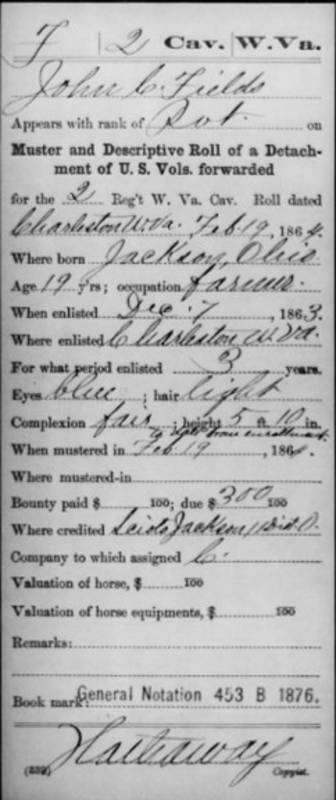 F | 2 | Cav. | W. Va.
John C. Fields
Appears with rank of Pvt. on
Muster and Descriptive Roll of a Detach-
ment of U. S. Vols. forwarded
for the 2 Reg't W. Va. Cav. Roll dated
Charleston W. Va. Feb. 19, 1864.
Where born Jackson, Ohio
Age 19 y'rs; occupation farmer.
When enlisted Dec. 7, 1863.
Where enlisted Charleston W. Va.
For what period enlisted 3 years.
Eyes blue; hair light
Complexion fair; height 5 ft. 10 in.
to date from enrollment
When mustered in Feb. 19, 1864.
Where mustered-in
Bounty paid $ 100; due $ 300 100
Where credited Jackson, O.
Company to which assigned C.
Valuation of horse, $ 100
Valuation of horse equipments, $ 100
Remarks:
Book mark: General Notation 453 B 1876.
Hathaway
(339) Copyist.